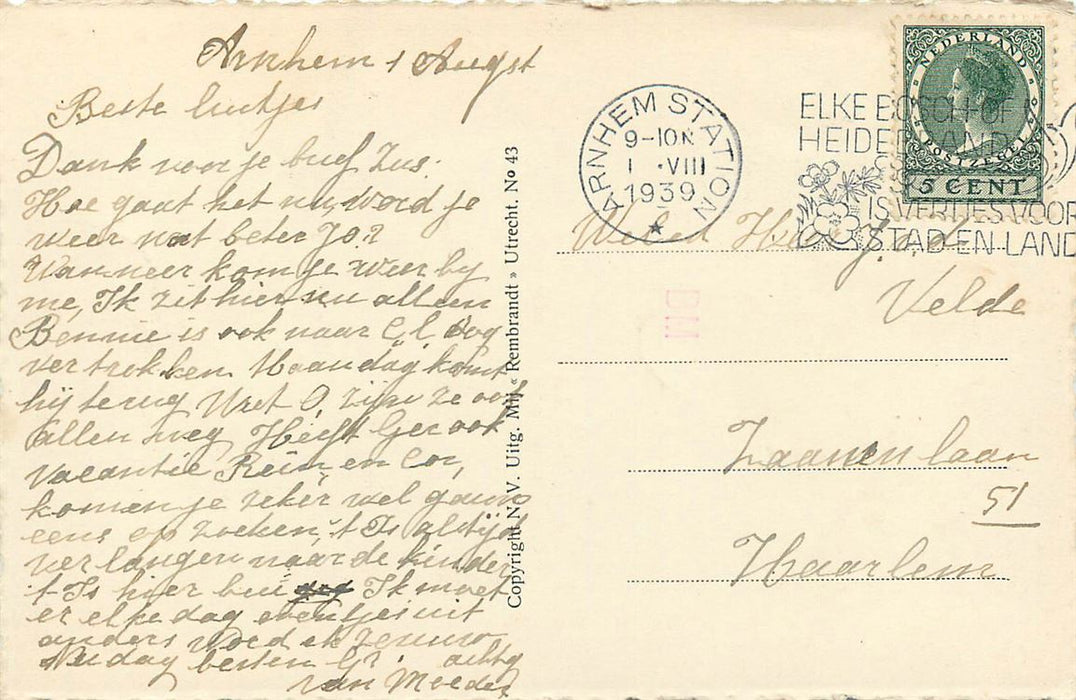 Arnhem 1 Augst
Beste luitjes
Dank voor je brief Zus.
Hoe gaat het nu, word je
weer wat beter Jo?
Wanneer kom je weer by
me, Ik zit hier nu alleen
Bennie is ook naar
vertrokken Maandag komt
hij terug zijn ze ook
allen weg Heeft Ger ook
vacantie Rein en Cor,
komen je zeker wel gauw
eens op zoeken, 't Is altijd
verlangen naar de kinder
't Is hier Ik moet
er elke dag eventjes uit
anders word ik zenuw
Nu dag besten Gr. achtg
van Moeder
Copyright N.V. Uitg. Mij « Rembrandt » Utrecht. No 43
ARNHEM STATION
9-10N
1 .VIII
1939
ELKE BOSCH OF
HEIDE LAND
IS VERLIES VOOR
STAD EN LAND
NEDERLAND
POSTZEGEL
5 CENT
Weled Heer
Velde
Zaanenlaan
51
Haarlem